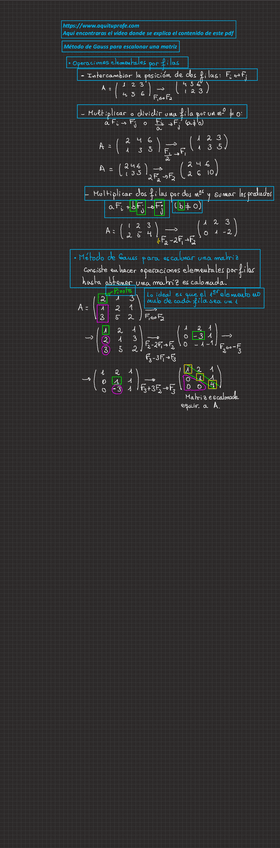 https://www.aquituprofe.com
Aquí encontraras el video donde se explica el contenido de este pdf
Método de Gauss para escalonar una matriz
• Operaciones elementales por filas
- Intercambiar la posición de dos filas: Fi ↔ Fj
A = (1 2 3 / 4 5 6) → F1↔F2 (4 5 6 / 1 2 3)
- Multiplicar o dividir una fila por un nº ≠ 0:
a Fi → Fi o Fi/a → Fi (a≠0)
A = (2 4 6 / 1 3 5) → F1/2 → F1 (1 2 3 / 1 3 5)
A = (2 4 6 / 1 3 5) → 2F2 → F2 (2 4 6 / 2 6 10)
- Multiplicar dos filas por dos nos y sumar los productos
a Fi + b Fj → Fj (b ≠ 0)
A = (1 2 3 / 2 5 4) → F2-2F1→F2 (1 2 3 / 0 1 -2)
• Método de Gauss para escalonar una matriz
Consiste en hacer operaciones elementales por filas
hasta obtener una matriz escalonada.
Pivote
Lo ideal es que el 1er elemento no
nulo de cada fila sea un 1
A = (2 1 3 / 1 2 1 / 3 5 2) → F1↔F2
→ (1 2 1 / 2 1 3 / 3 5 2) → F2-2F1→F2 F3-3F1→F3 (1 2 1 / 0 -3 1 / 0 -1 -1) → F2↔-F3
→ (1 2 1 / 0 1 1 / 0 -3 1) → F3+3F2→F3 (1 2 1 / 0 1 1 / 0 0 4)
Matriz escalonada
equiv. a A.